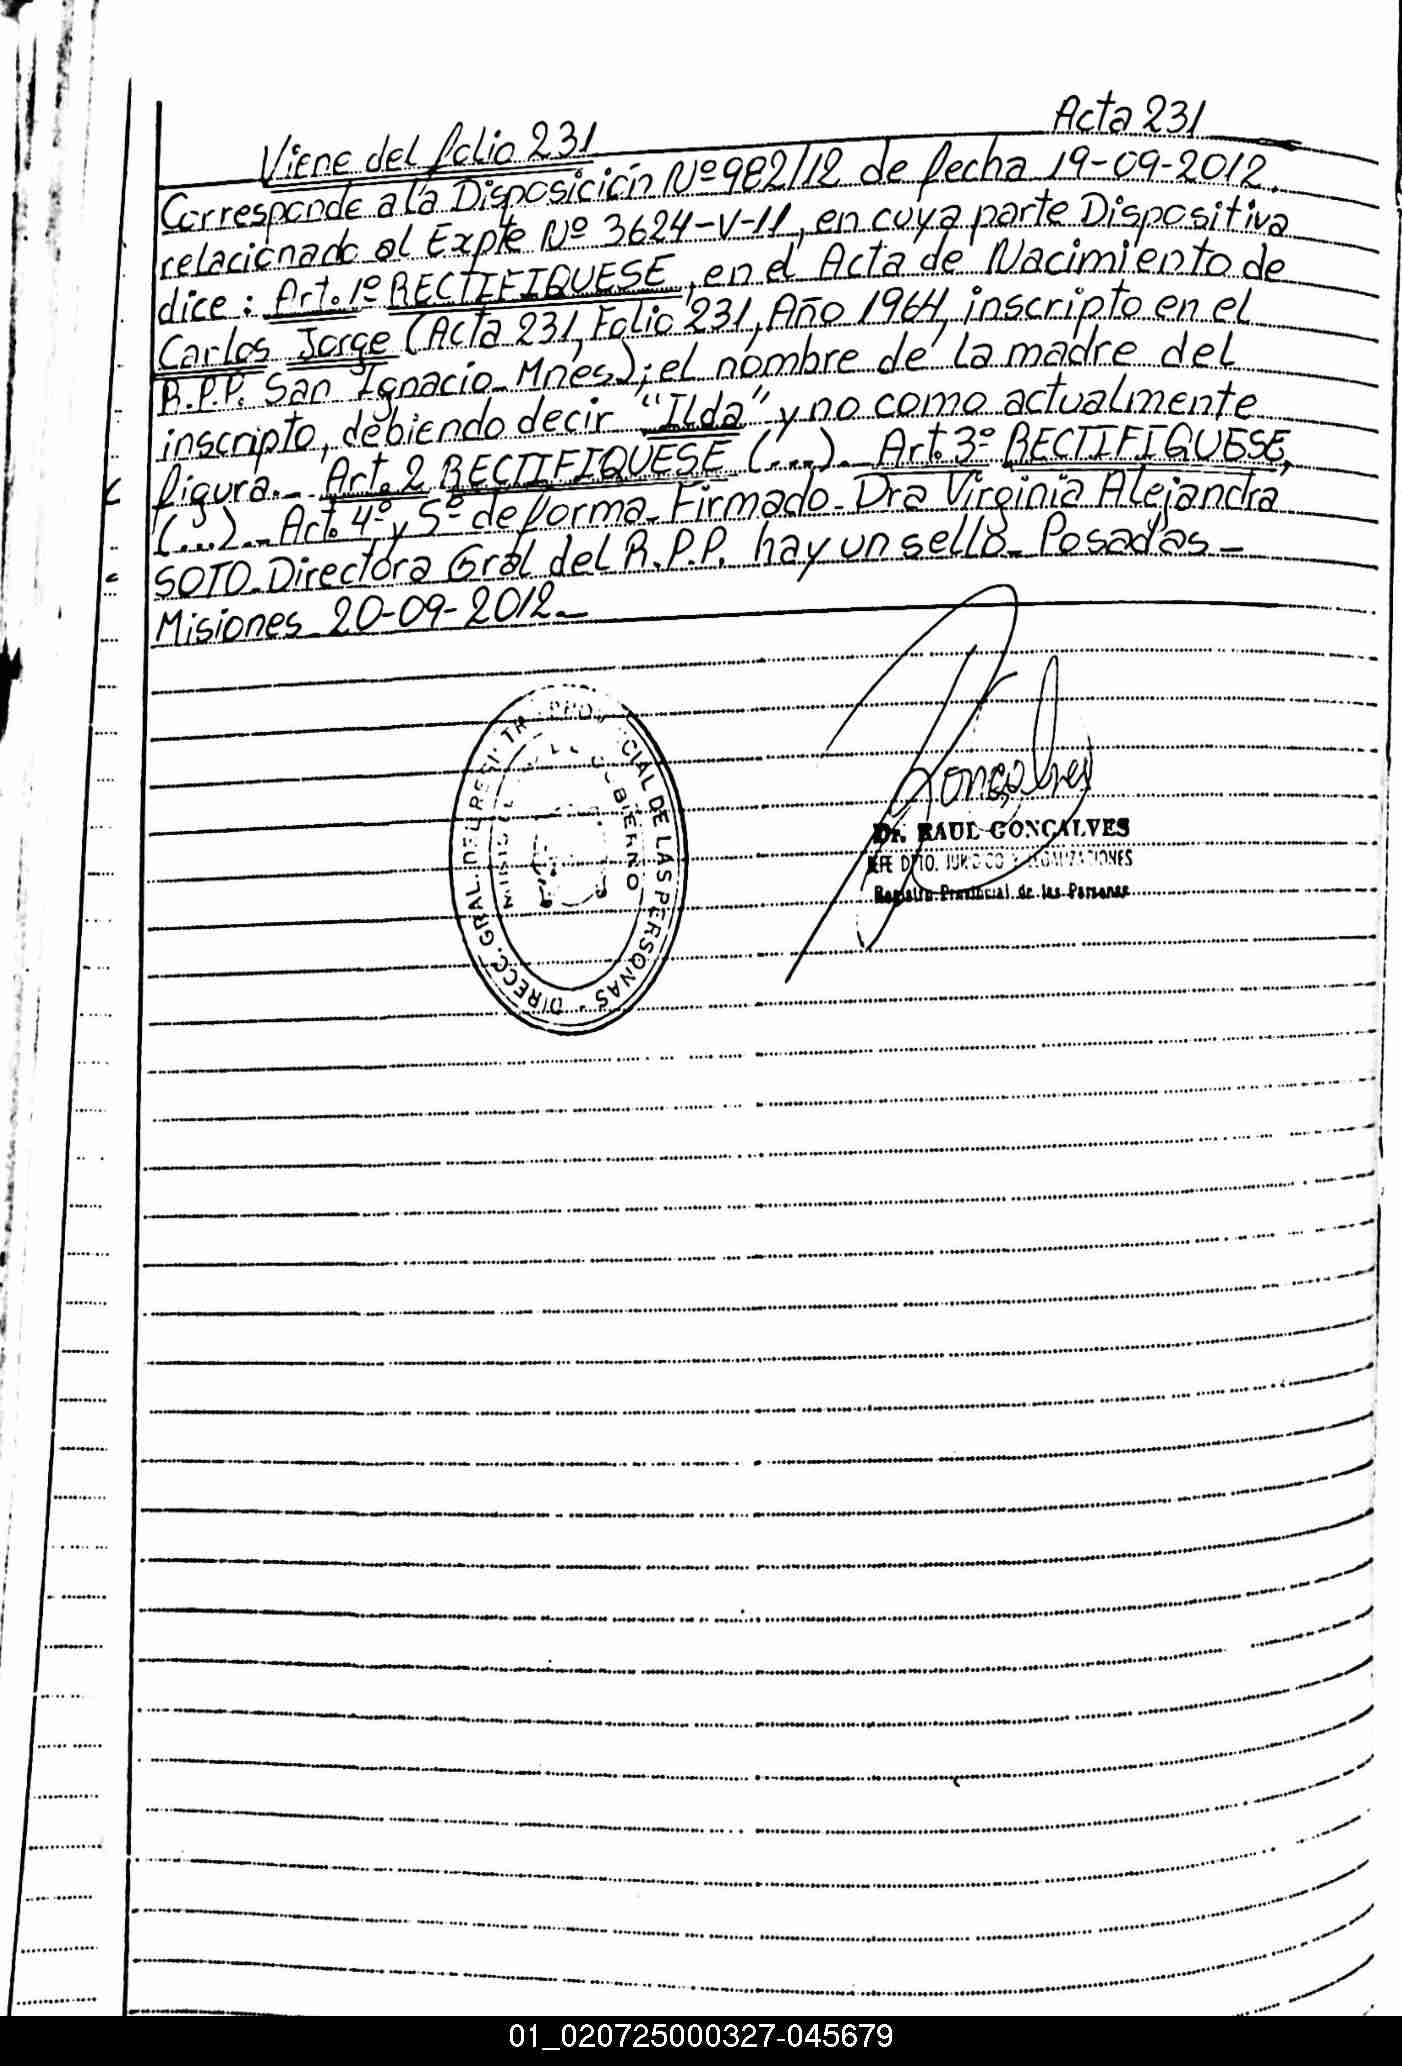 Acta 231
Viene del folio 231
Corresponde a la Disposición Nº 982/12 de fecha 19-09-2012,
relacionado al Expte Nº 3624-V-11, en cuya parte Dispositiva
dice: Art. 1º RECTIFIQUESE, en el Acta de Nacimiento de
Carlos Jorge (Acta 231, Folio 231, Año 1964, inscripto en el
R.P.P. San Ignacio - Mnes); el nombre de la madre del
inscripto, debiendo decir "Ilda" y no como actualmente
figura.- Art. 2 RECTIFIQUESE (...). Art. 3º RECTIFIQUESE,
(...).- Art. 4º y 5º de forma - Firmado - Dra Virginia Alejandra
SOTO - Directora Gral del R.P.P. hay un sello - Posadas -
Misiones 20-09-2012.-
DIRECC. GRAL. DEL REGISTR PROV CIAL DE LAS PERSONAS -
GOBIERNO
Goncalves
Dr. RAUL GONCALVES
JEFE DPTO. JURIDICO Y LEGALIZACIONES
Registro Provincial de las Personas
01_020725000327-045679